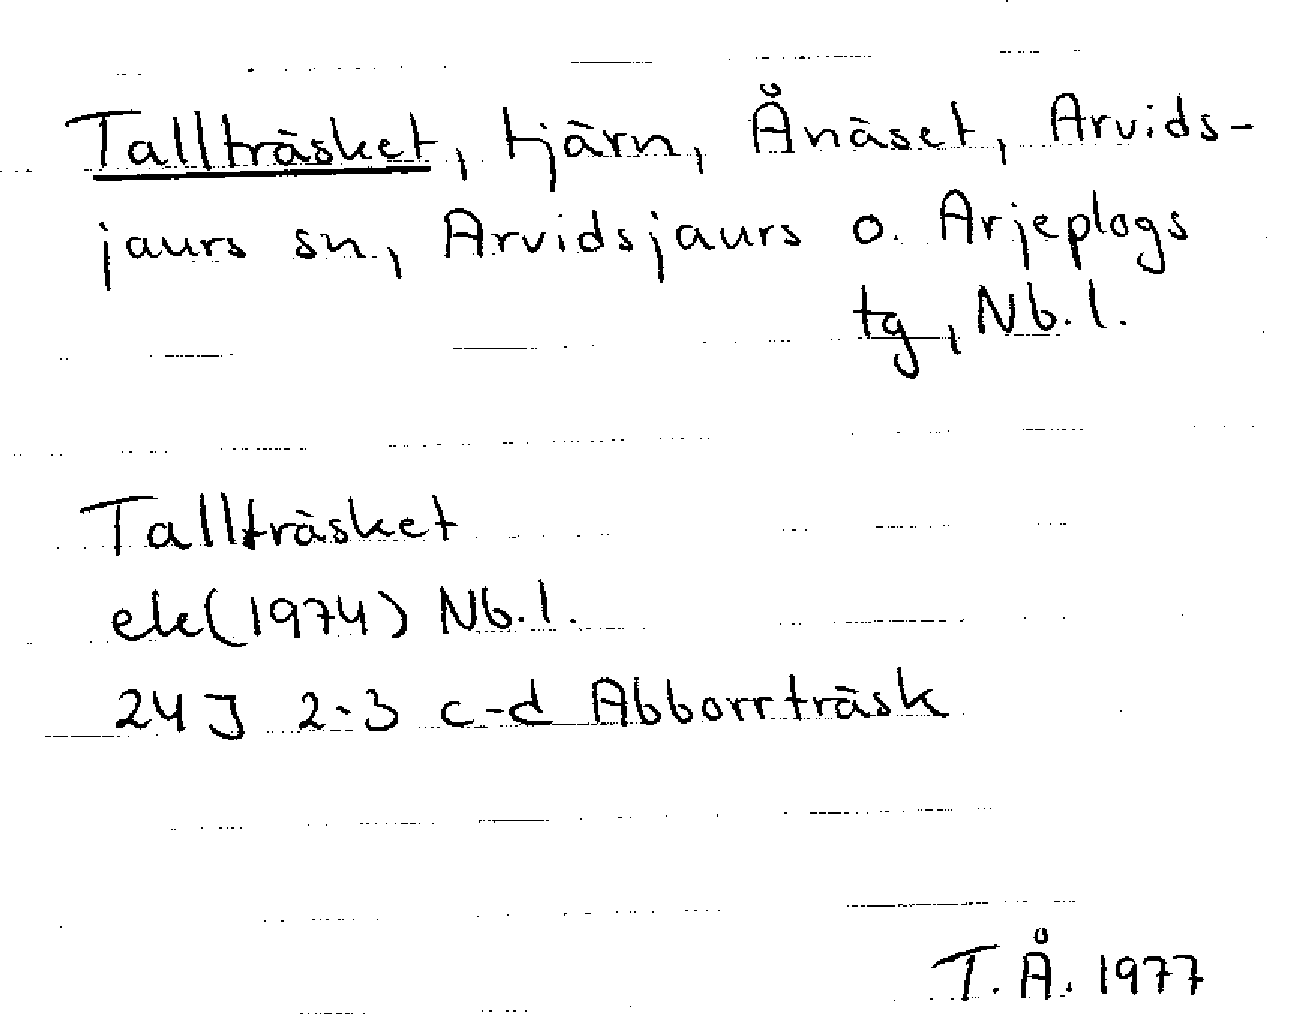 Tallträsket, tjärn, Ånäset, Arvids-
jaurs sn, Arvidsjaurs o. Arjeplogs
tg, Nb.l.
Tallträsket
ek (1974) Nb.l.
24J 2-3 c-d Abborrträsk
T.Å. 1977